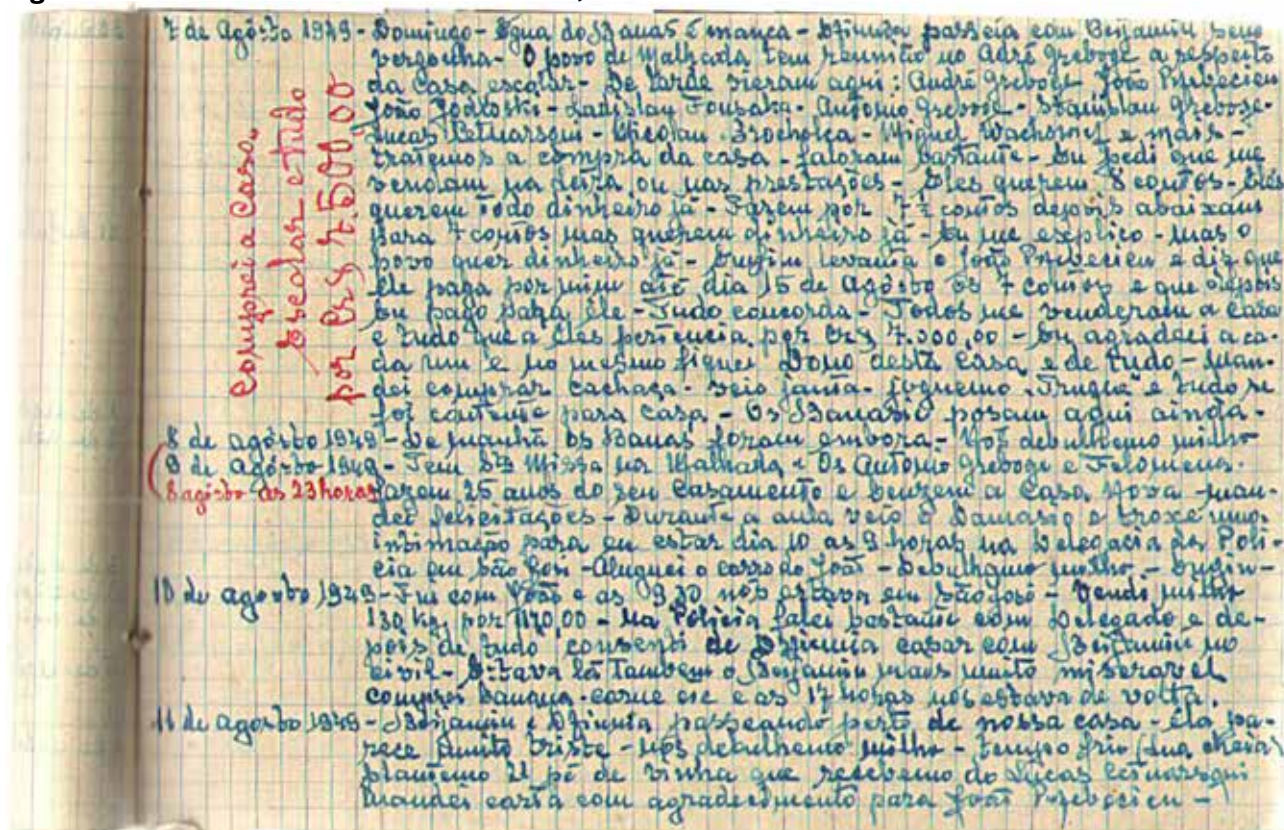 7 de Agôsto 1949 - Domingo - Egua do Banas é mança - passeia com Benjamin sem
vergonha - O povo de Malhada tem reunião no André Greboge a respeito
da Casa escolar - De tarde vieram aqui: André Greboge, João
João - Ladislau - Antonio Greboge - Stanislau Greboge -
Lucas - Nicolau - Miguel e mais -
tratemos a compra da casa - faloram bastante - Eu pedi que me
vendam na deixa ou nas prestações - Eles querem 8 contos - Eles
querem todo dinheiro já - Fazem por 7 ½ contos depois abaixam
para 7 contos mas querem dinheiro já - Eu me explico - mas o
povo quer dinheiro já - Enfim levanta o João e diz que
ele paga por mim até dia 15 de Agôsto os 7 contos e que depois
eu pago para êle - Tudo concorda - Todos me venderam a casa
e tudo que a eles pertencia por Cr\$ 7.500,00 - Eu agradeci a ca-
da um e no mesmo fiquei Dono desta Casa e de tudo - man-
dei comprar cachaça - veio janta - joguemo "Truque" e tudo se
foi contente para casa - Os Banasio posam aqui ainda -
Comprei a Casa
Escolar e tudo
por Cr\$ 7.500,00
8 de agôsto 1949 - De manhã os Banas foram embora - Nos debulhemo milho
9 de agôsto 1949 - Tem Sta Missa na Malhada - Os Antonio Greboge e
8 agôsto as 23 horas fazem 25 anos do seu Casamento e benzem a Casa Nova - man-
dei felicitações - Durante a aula veio o Damasio e troxe uma
intimação para eu estar dia 10 as 9 horas na Delegacia da Poli-
cia em São José - Aluguei o carro do João - Debulhemo milho -
10 de agosto 1949 - Fui com João e as 9,30 nós estava em São José - Vendi milho
130 kg por - Na Policia falei bastante com Delegado e de-
pois de tudo consenti de casar com Benjamin no
civil - Estava lá Tambem o Benjamin mais muito miseravel
comprei banana - carne etc e as 17 horas nós estava de volta.
11 de agosto 1949 - Benjamin e passeando perto de nossa casa - ela pa-
rece muito triste - nós debulhemo milho - tempo frio (lua cheia)
plantemo 21 pé de vinha que recebemo do Lucas
Mandei carta com agradecimento para João